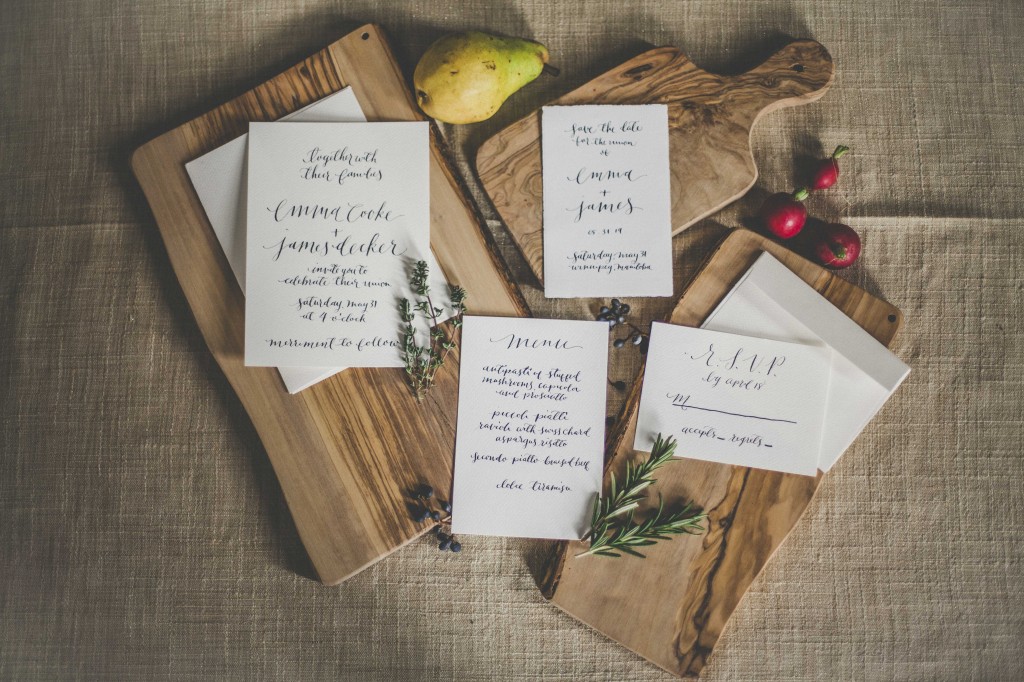 together with
their families
Emma Cooke
+
james decker
invite you to
celebrate their union
saturday, may 31
at 4 o'clock
merriment to follow
save the date
for the union
of
emma
+
james
05 31 14
saturday, may 31
winnipeg, manitoba
menu
antipasti of stuffed
mushrooms, capicola
and prosciutto
piccolo piatti
ravioli with swiss chard
asparagus risotto
secondo piatto braised beef
dolce tiramisu
R.S.V.P.
by april 18
M
accepts_ regrets_